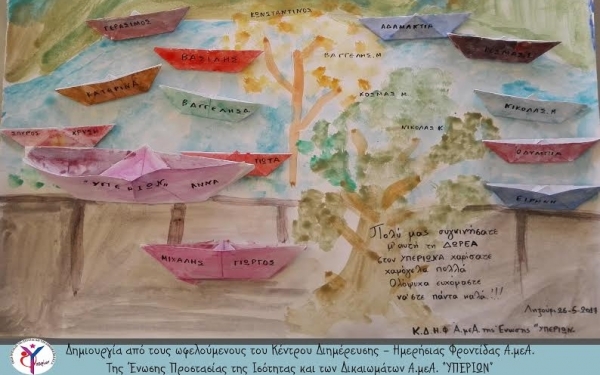 ΓΕΡΑΣΙΜΟΣ
ΚΩΝΣΤΑΝΤΙΝΟΣ
ΑΔΑΜΑΝΤΙΑ
ΒΑΣΙΛΗΣ
ΒΑΓΓΕΛΗΣ.Μ
ΚΑΤΕΡΙΝΑ
ΒΑΓΓΕΛΗΣ Δ
ΚΟΣΜΑΣ Μ
ΝΙΚΟΛΑΣ Κ
ΝΙΚΟΛΑΣ Κ
ΣΠΥΡΟΣ ΧΡΥΣΗ
ΓΙΩΤΑ
ΟΛΥΜΠΙΑ
ΑΝΝΑ
ΕΙΡΗΝΗ
ΜΙΧΑΛΗΣ ΓΙΩΡΓΟΣ
Πολύ μας συγκινήσατε
μ' αυτή τη ΔΩΡΕΑ
στον ΥΠΕΡΙΩΝΑ χαρίσατε
χαμόγελα πολλά
Ολόψυχα ευχόμαστε
να'στε πάντα καλά!!!
Κ.Δ.Η.Φ Α.μεΑ της Ένωσης "ΥΠΕΡΙΩΝ
Δημιουργία από τους ωφελούμενους του Κέντρου Διημέρευσης – Ημερήσιας Φροντίδας Α.μεΑ.
Της Ένωσης Προστασίας της Ισότητας και των Δικαιωμάτων Α.μεΑ. "ΥΠΕΡΙΩΝ"